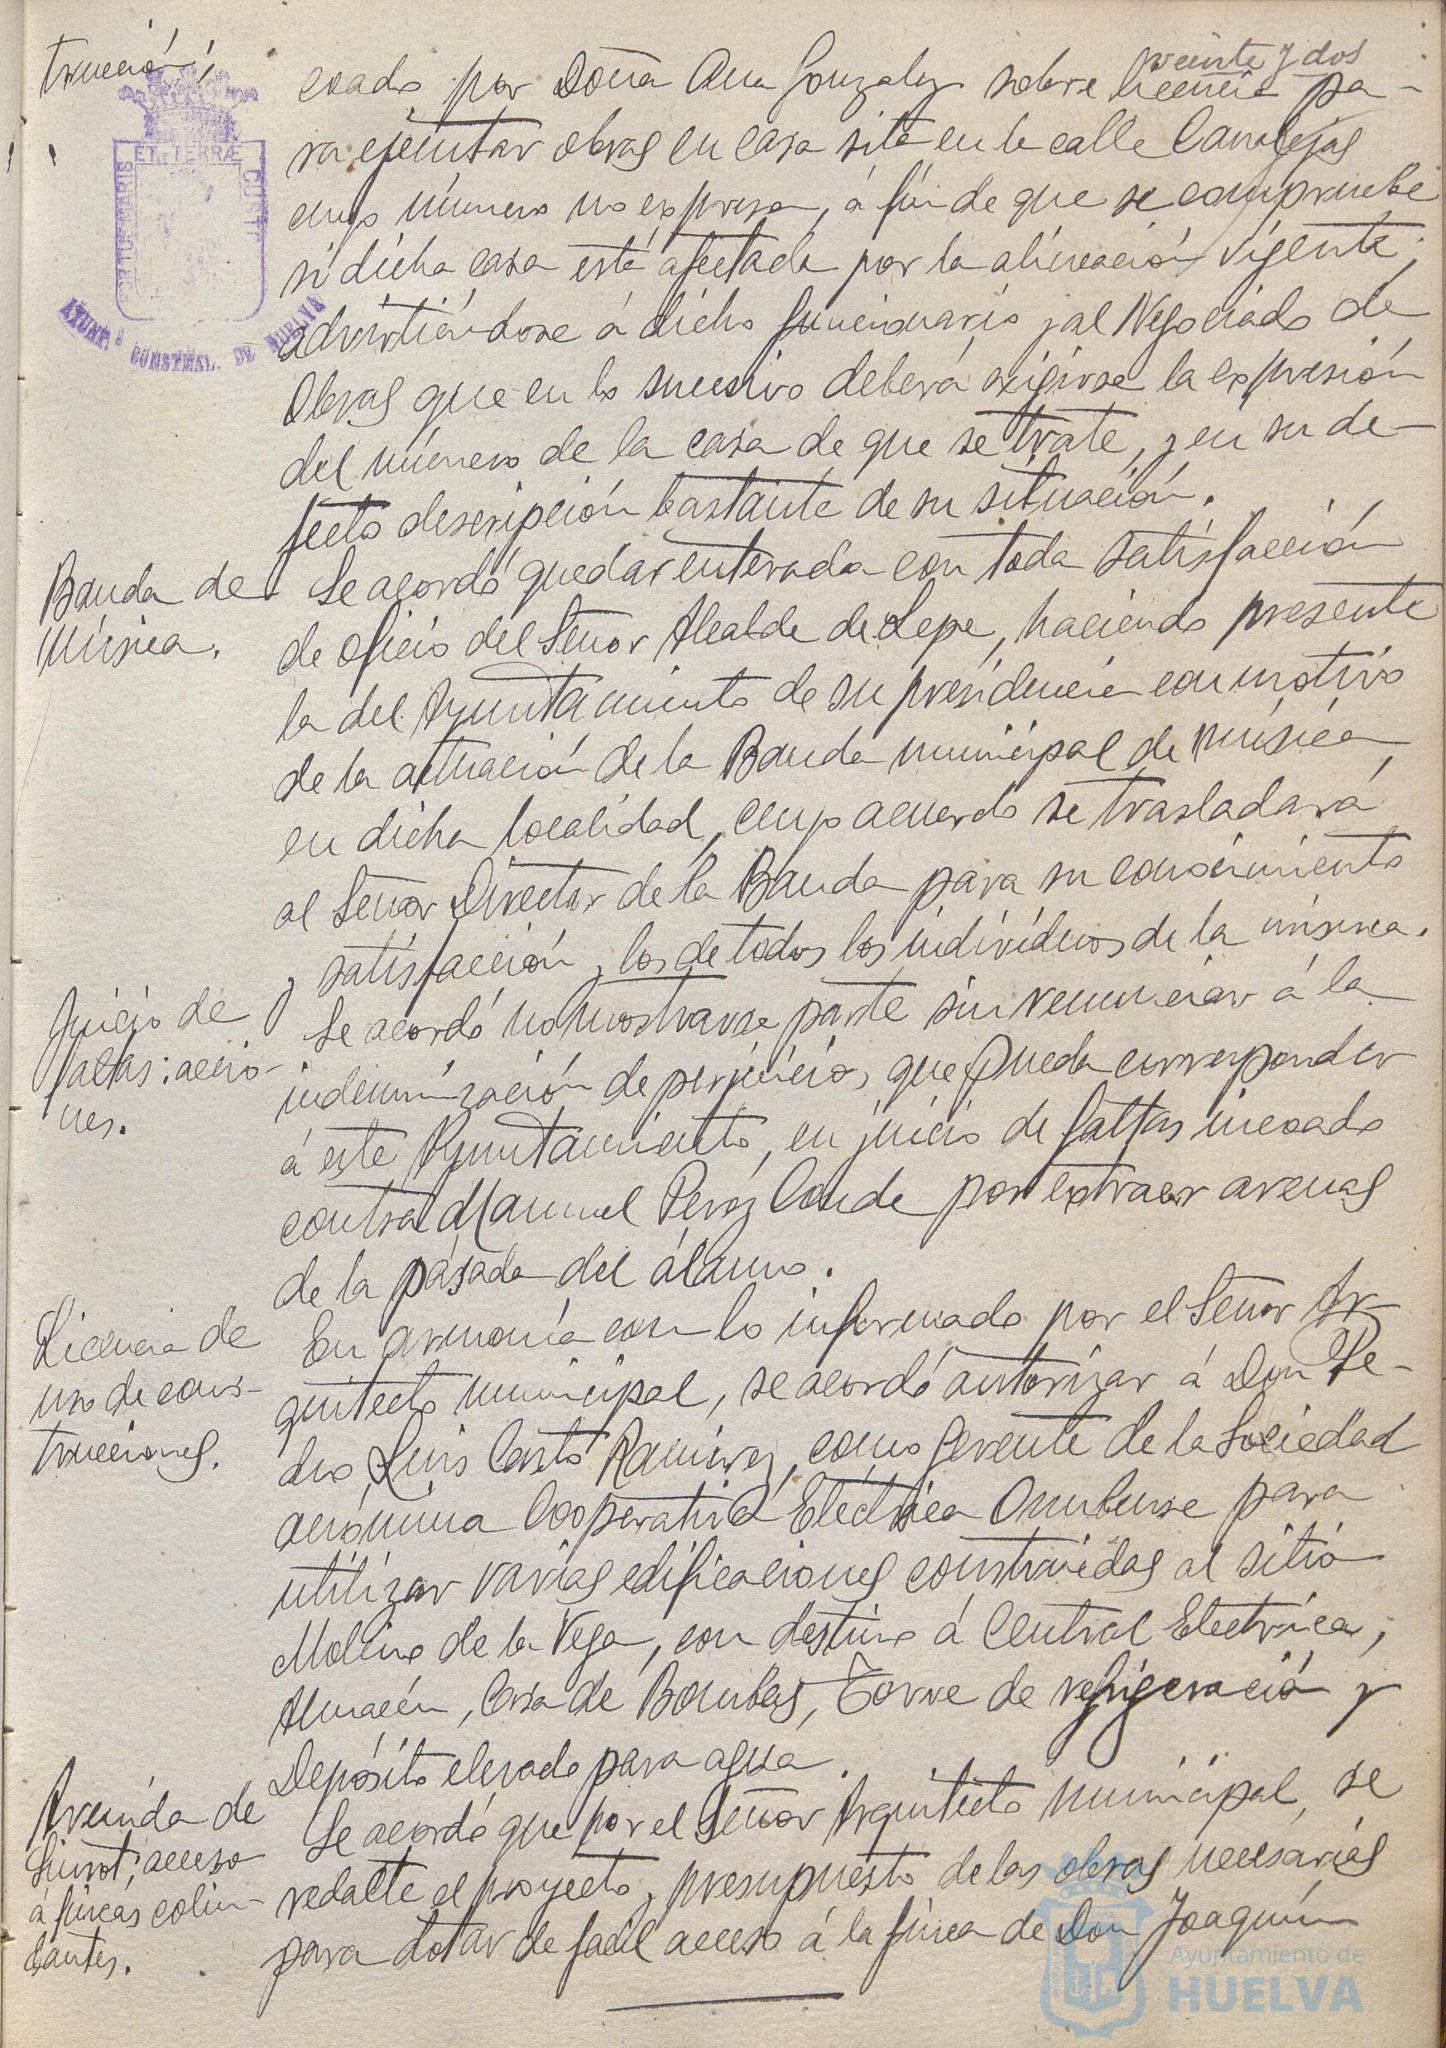 veinte y dos
trucción;
coado por Doña Ana Gonzalez sobre licencia pa-
ra ejecutar obras en casa sita en la calle Canalejas
cuyo número no expresa, á fin de que se compruebe
si dicha casa está afectada por la alineación vigente;
advirtiéndose á dicho funcionario y al Negociado de
Obras que en lo sucesivo deberá exigirse la expresión
del número de la casa de que se trate, y en su de-
fecto descripción bastante de su situación.
PORTUS MARIS
ET TERRÆ
CUSTODIA
AYUNT.º CONSTNEL. DE HUELVA
Banda de
Música.
Se acordó quedar enterada con toda satisfacción
de oficio del Señor Alcalde de Lepe, haciendo presente
la del Ayuntamiento de su presidencia con motivo
de la actuación de la Banda municipal de música
en dicha localidad, cuyo acuerdo se trasladará
al Señor Director de la Banda para su conocimiento
y satisfacción y los de todos los individuos de la misma.
Juicio de
faltas: accio-
nes.
Se acordó no mostrarse parte sin renunciar á la
indemnización de perjuicios que pueda corresponder
á este Ayuntamiento, en juicio de faltas incoado
contra Manuel Peréz Conde por extraer arenas
de la pasada del álamo.
Licencia de
uso de cons-
trucciones.
En armonía con lo informado por el Señor Ar-
quitecto municipal, se acordó autorizar á Don Pe-
dro Luis Casto Ramirez, como gerente de la Sociedad
anónima Cooperativa Eléctrica Onubense para
utilizar varias edificaciones construidas al sitio
Molino de la Vega, con destino á Central Electrica,
Almacén, Casa de Bombas, Torre de refrigeración y
Depósito elevado para agua.
Avenida de
Siurot; acceso
á fincas colin-
dantes.
Se acordó que por el Señor Arquitecto municipal, se
redacte el proyecto y presupuesto de las obras necesarias
para dotar de facil acceso á la finca de Don Joaquín
Ayuntamiento de
HUELVA